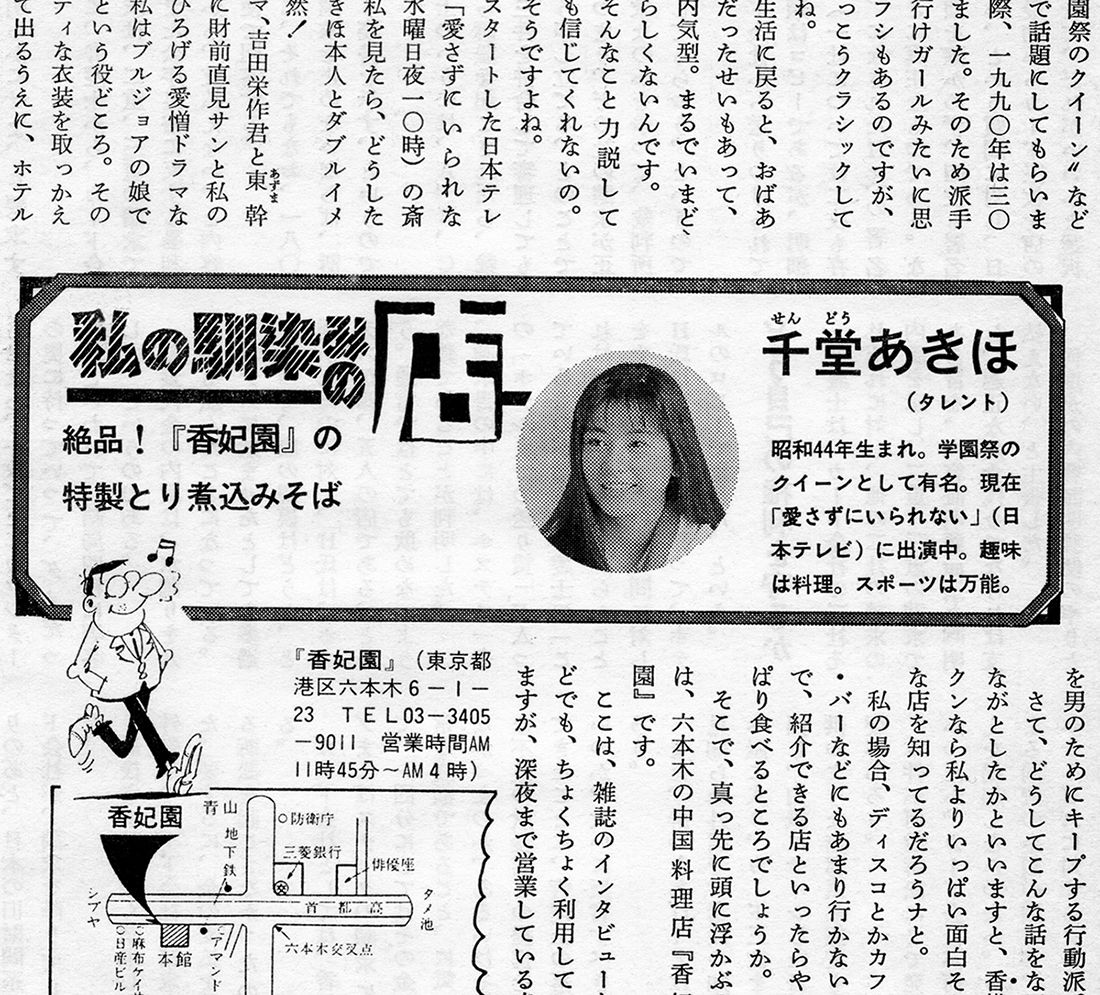 園祭のクイーン〟など
で話題にしてもらいま
際、一九九〇年は三〇
ました。そのため派手
行けガールみたいに思
フシもあるのですが、
っこうクラシックして
ね。
生活に戻ると、おばあ
だったせいもあって、
内気型。まるでいまど、
らしくないんです。
そんなこと力説して
も信じてくれないの。
そうですよね。
スタートした日本テレ
「愛さずにいられな
水曜日夜一〇時）の斎
私を見たら、どうした
きほ本人とダブルイメ
然！
マ、吉田栄作君と東幹
あずま
に財前直見サンと私の
ひろげる愛憎ドラマな
私はブルジョアの娘で
という役どころ。その
ティな衣装を取っかえ
て出るうえに、ホテル
私の馴染みの店
絶品！『香妃園』の
特製とり煮込みそば
せん どう
千堂あきほ
（タレント）
昭和44年生まれ。学園祭の
クイーンとして有名。現在
「愛さずにいられない」（日
本テレビ）に出演中。趣味
は料理。スポーツは万能。
を男のためにキープする行動派。
さて、どうしてこんな話をな
ながとしたかといいますと、香
クンなら私よりいっぱい面白そ
な店を知ってるだろうナと。
私の場合、ディスコとかカフ
・バーなどにもあまり行かない
で、紹介できる店といったらや
ぱり食べるところでしょうか。
そこで、真っ先に頭に浮かぶ
は、六本木の中国料理店『香
園』です。
ここは、雑誌のインタビュー
どでも、ちょくちょく利用して
ますが、深夜まで営業している
『香妃園』（東京都
港区六本木6－1－
23 TEL03－3405
－9011 営業時間AM
11時45分～AM4時）
香妃園
青山
地下鉄
防衛庁
三菱銀行
俳優座
シブヤ
首都高
タメ池
六本木交叉点
アマンド
本館
麻布ケイ
日産ビル